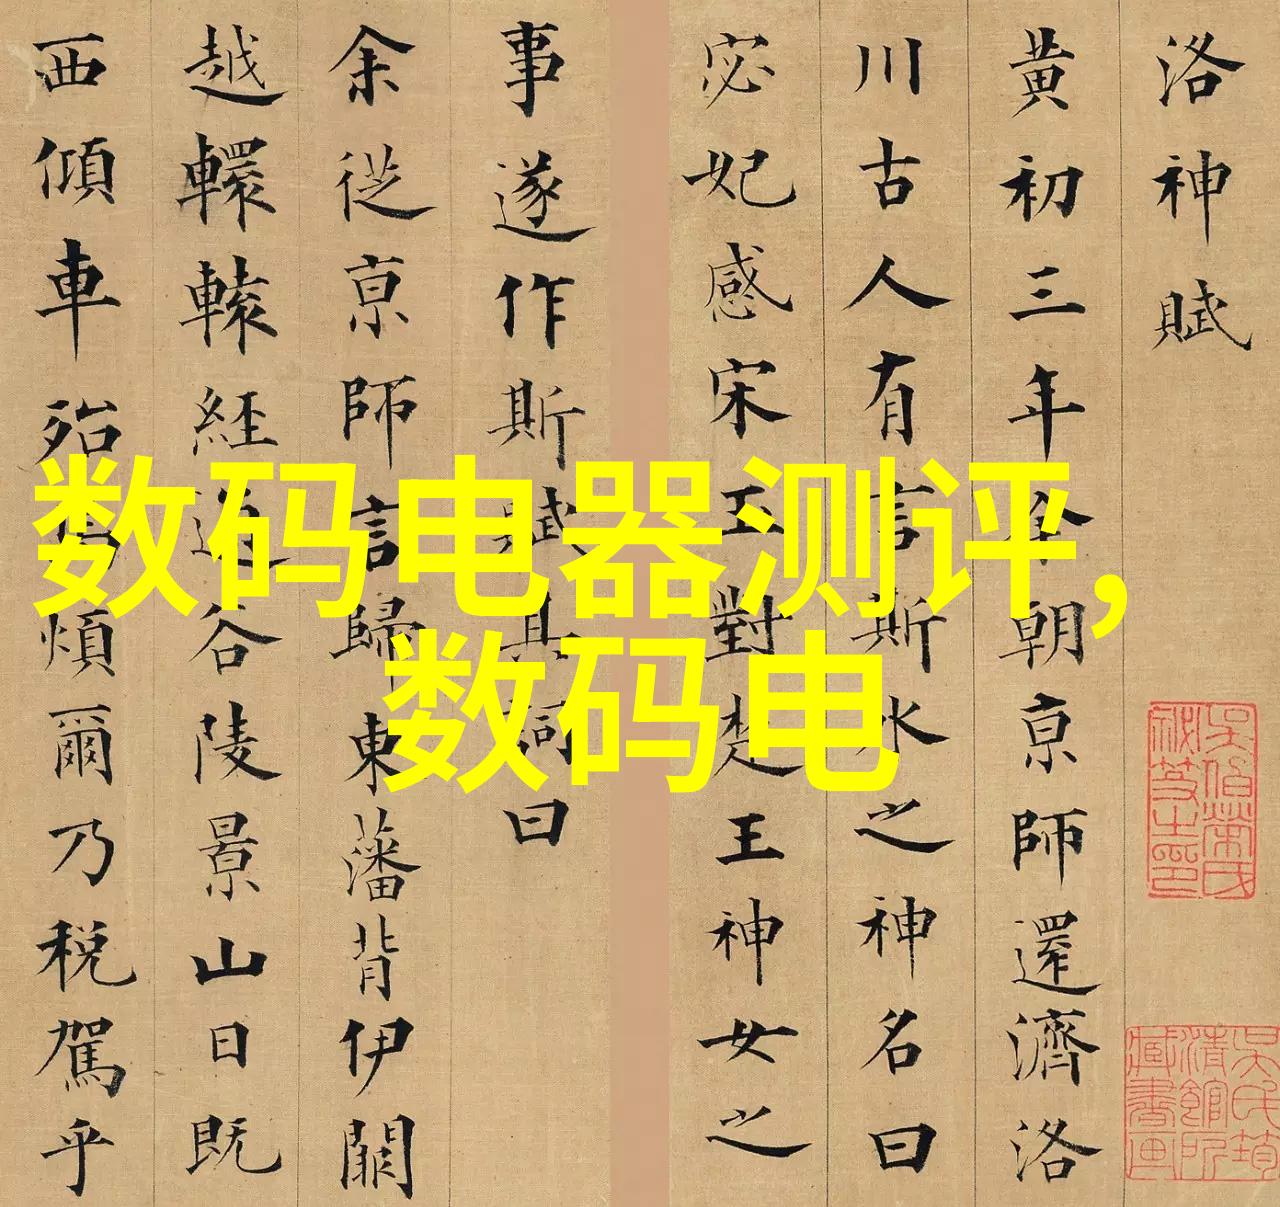 洛神賦
黄初三年余朝京師還濟洛
川古人有言斯水之神名曰
宓妃感宋玉對楚王神女之
事遂作斯賦其詞曰
余從京師言歸東藩背伊闕
越轘轅經通谷陵景山日既
西傾車殆馬煩爾乃税駕乎
数码电器测评，
数码电